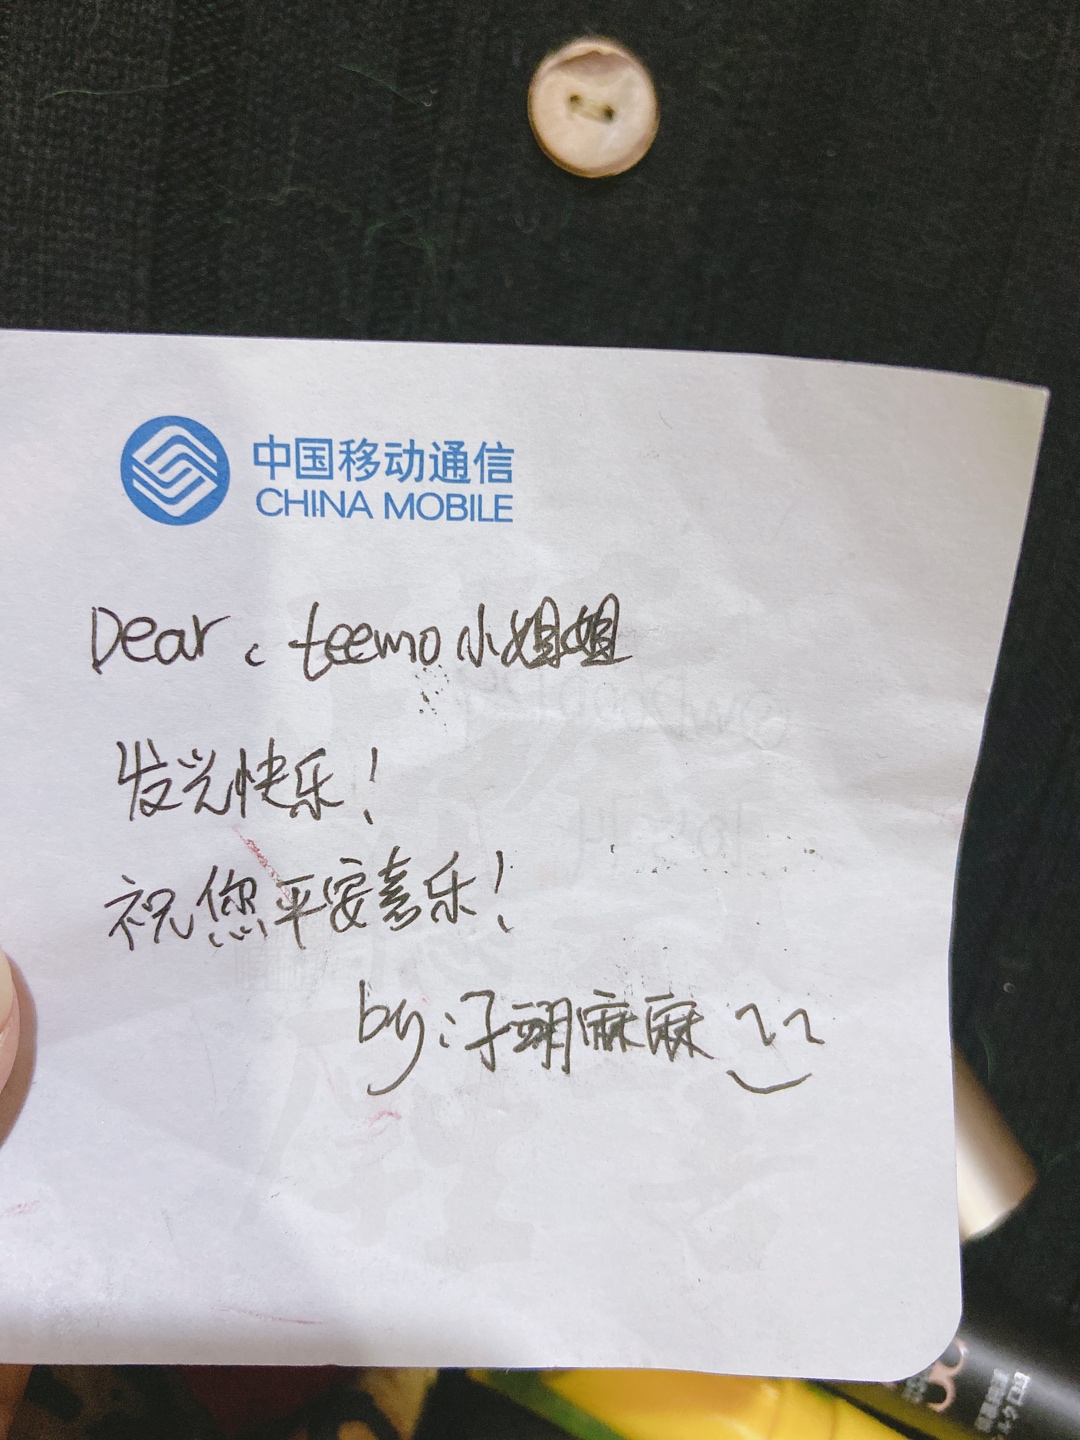 中国移动通信
CHINA MOBILE
Dear、teemo小姐姐
发光快乐!
祝您平安喜乐!
by:子翊麻麻